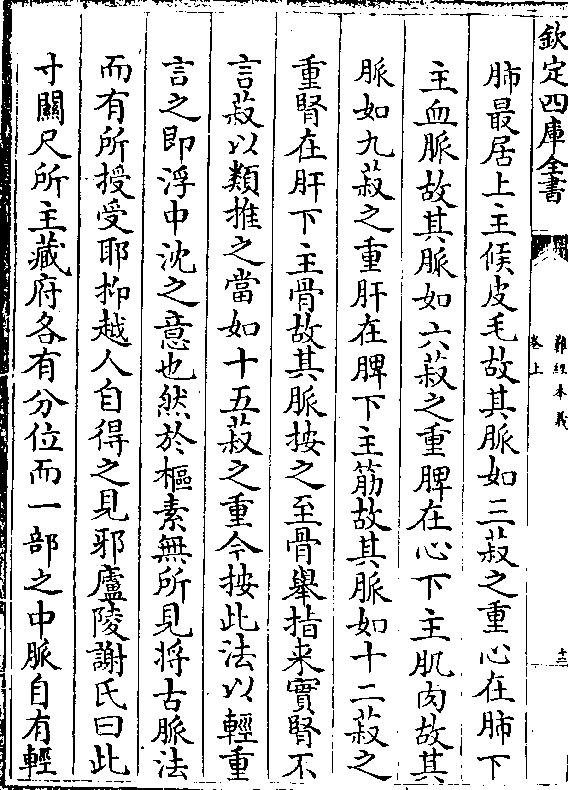 欽定四庫全書
難經本義
卷上
十三
肺最居上主候皮毛故其脈如三菽之重心在肺下
主血脈故其脈如六菽之重脾在心下主肌肉故其
脈如九菽之重肝在脾下主筋故其脈如十二菽之
重腎在肝下主骨故其脈按之至骨舉指来實腎不
言菽以類推之當如十五菽之重今按此法以輕重
言之即浮中沈之意也然於樞素無所見将古脈法
而有所授受耶抑越人自得之見邪廬陵謝氏曰此
寸關尺所主藏府各有分位而一部之中脈自有輕